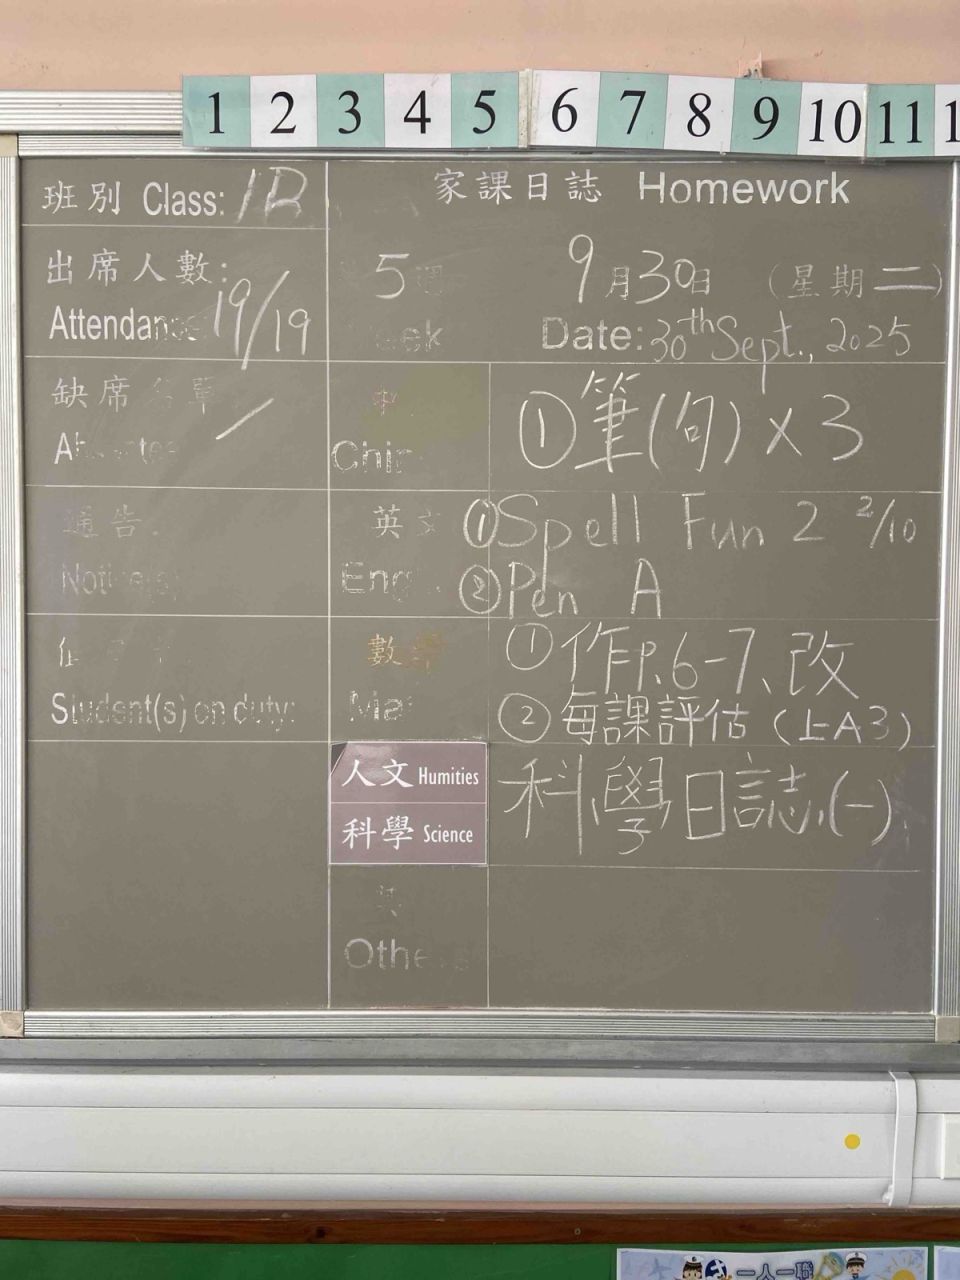 1 2 3 4 5 6 7 8 9 10 11 1
班別 Class: 1B
家課日誌 Homework
出席人數:
Attendance 19/19
5 週 9月30日 (星期二)
eek Date: 30th Sept., 2025
缺席名單
Absentee /
中
Chin
①筆(句) x 3
通告:
Notice(s)
英文
Eng
①Spell Fun 2 2/10
②Pen A
Student(s) on duty:
數學
Mat
①作P.6-7、改
②每課評估 (上A3)
人文 Humities
科學 Science
科學日誌(一)
其
Othe
一人一職